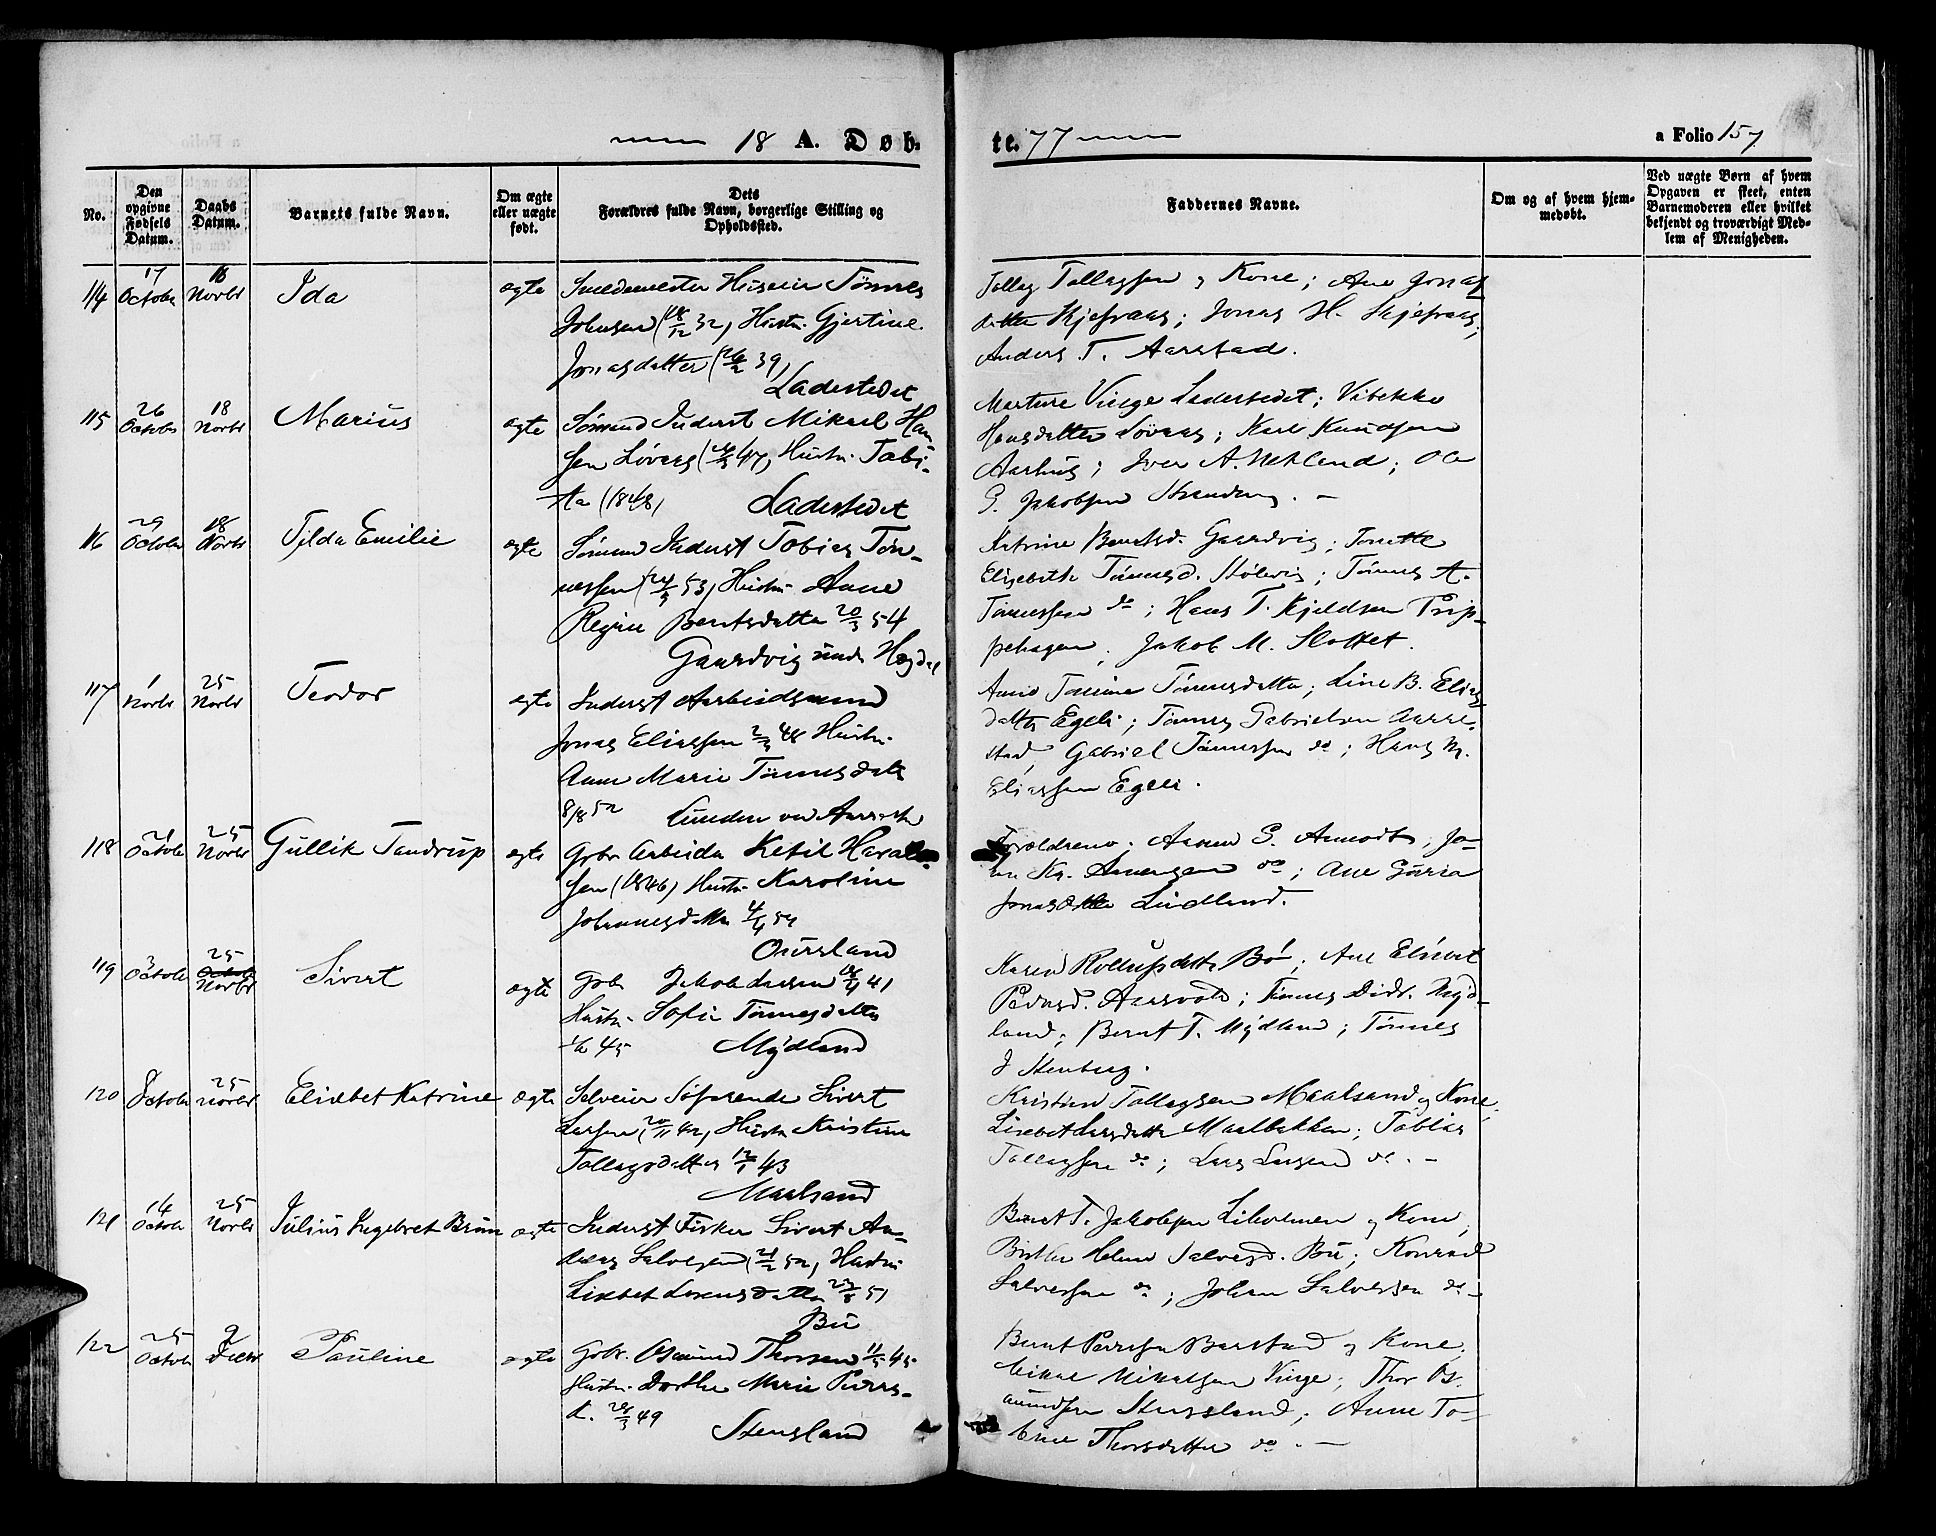 18 A. Døb-
te. 77
a Folio 157
No.
Den opgivne Fødsels Datum.
Daabs Datum.
Barnets fulde Navn.
Om ægte eller uægte født.
Dets Forældres fulde Navn, borgerlige Stilling og Opholdssted.
Faddernes Navne.
Om og af hvem hjemmedøbt.
Ved uægte Børn af hvem Opgaven er skeet, enten Barnemoderen eller hvilket bekjendt og troværdigt Medlem af Menigheden.
114 17 October 18 Novbr Ida ægte
Smedemester Huseier Tønnes
Johnsen (18/12 32) Hustr. Gjertine
Jonasdatter (26/2 39)
Ladestedet
Tollag Tollagsen og Kone; Ane Jonas
datter Skjefraas; Jonas H. Skjefraas;
Anders T. Aarstad.
115 26 October 18 Novbr Marius ægte
Sømand Inderst Mikael Han-
sen Løvaas 47) Hustr. Tobi-
ta (1848)
Ladestedet
Vinge Ladestedet; Vibekke
Hansdatter Løvaas; Karl Knudsen
Aarhus; Iver A. ; Ole
G. Jakobsen
116 29 October 18 Novbr Tilda Emilie ægte
Sømand Inderst Tobias Tøn-
nessen 53) Hustr. Anne
Regine Berntsdatter 20/3 54
Gaardvig under
Katrine Berntsd. Gaardvig; Tonette
Elisebeth Tønnesd. ; Tønnes A.
Tønnessen do; Hans T. Kjeldsen Trip-
pehagen; Jakob M. Slottet.
117 1 Novbr 25 Novbr Teodor ægte
Inderst Arbeidsmand
Jonas Eliassen 48 Hustr.
Anne Marie Tønnesdatt.
8/8 52 Lunden ved
Tønnesdatter; Line B. Elias
datter Egeli; Tønnes Gabrielsen Aarre-
stad; Gabriel Tønnessen do; Hans M.
Eliassen Egeli.
118 21 October 25 Novbr Gullik Tandrup ægte
Gbr. Arbeider Ketil Haral-
sen (1846) Hustr. Karoline
Johannesdatter
Forældrene; G. Aamodt;
do; Ane
Jonasdatter Lindland.
119 3 October 25 Novbr Sivert ægte
Gbr. Jakob Larsen 41
Hustr. Sofie Tønnesdatter
45 Mydland
Karen Bø;
Pedersd. ; Tønnes Didr. Myd-
land; Bernt T. Mydland; Tønnes
J Stenberg.
120 8 October 25 Novbr Elisebet Katrine ægte
Selveier Søfarende Sivert
Larsen (20/11 42) Hustr. Kristine
Tollagsdatter 12/1 43
Maalsand
Kristian Tollagsen Maalsand og Kone;
Lisebet Larsdatter Maalbakken; Tobias
Tollagsen do; Lars Larsen do.
121 14 October 25 Novbr Julius Ingebret Bruun ægte
Inderst Fisker Sivert An-
dreas Salvesen (21/2 52) Hustr.
Lisebet Lorensdatter 51
Bu
Bernt T. Jakobsen og Kone;
Helene Salvesd. Bu; Konrad
Salvessen do; Johan Salvessen do
122 25 October 2 Decbr Pauline ægte
Gbr. Osmund Thorsen 11/5 45
Hustr. Dorthe Marie Peders-
d. 49
Stensland
Bernt Pedersen Barstad og Kone;
Mikal Mikalsen Vinge; Thor Os-
mundsen Stensland; Anne To-
Thorsdatter do.